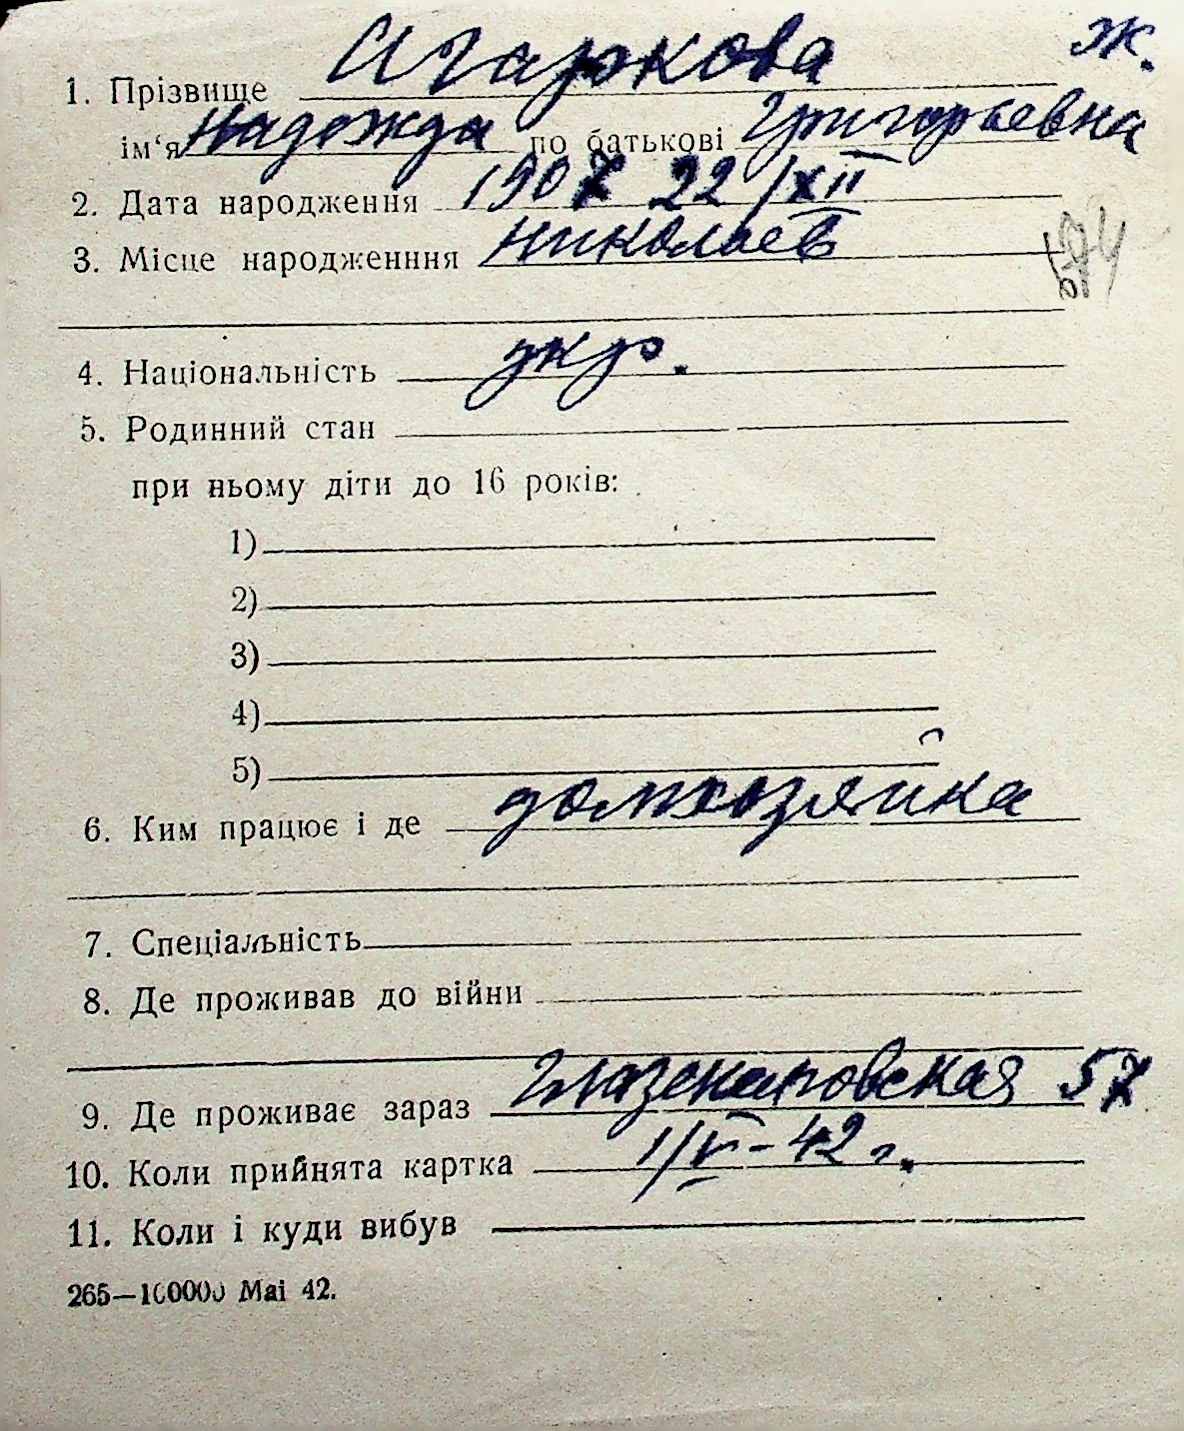 ж.
1. Прізвище Агаркова
ім‘я Надежда по батькові Григорьевна
2. Дата народження 1907 22/XII
3. Місце народженння Николаев
4. Національність укр.
5. Родинний стан
при ньому діти до 16 років:
1)
2)
3)
4)
5)
6. Ким працює і де домхозяйка
7. Спеціальність
8. Де проживав до війни
9. Де проживає зараз Глазенаповская 57
10. Коли прийнята картка 1/V-42 г.
11. Коли і куди вибув
265—100000 Mai 42.